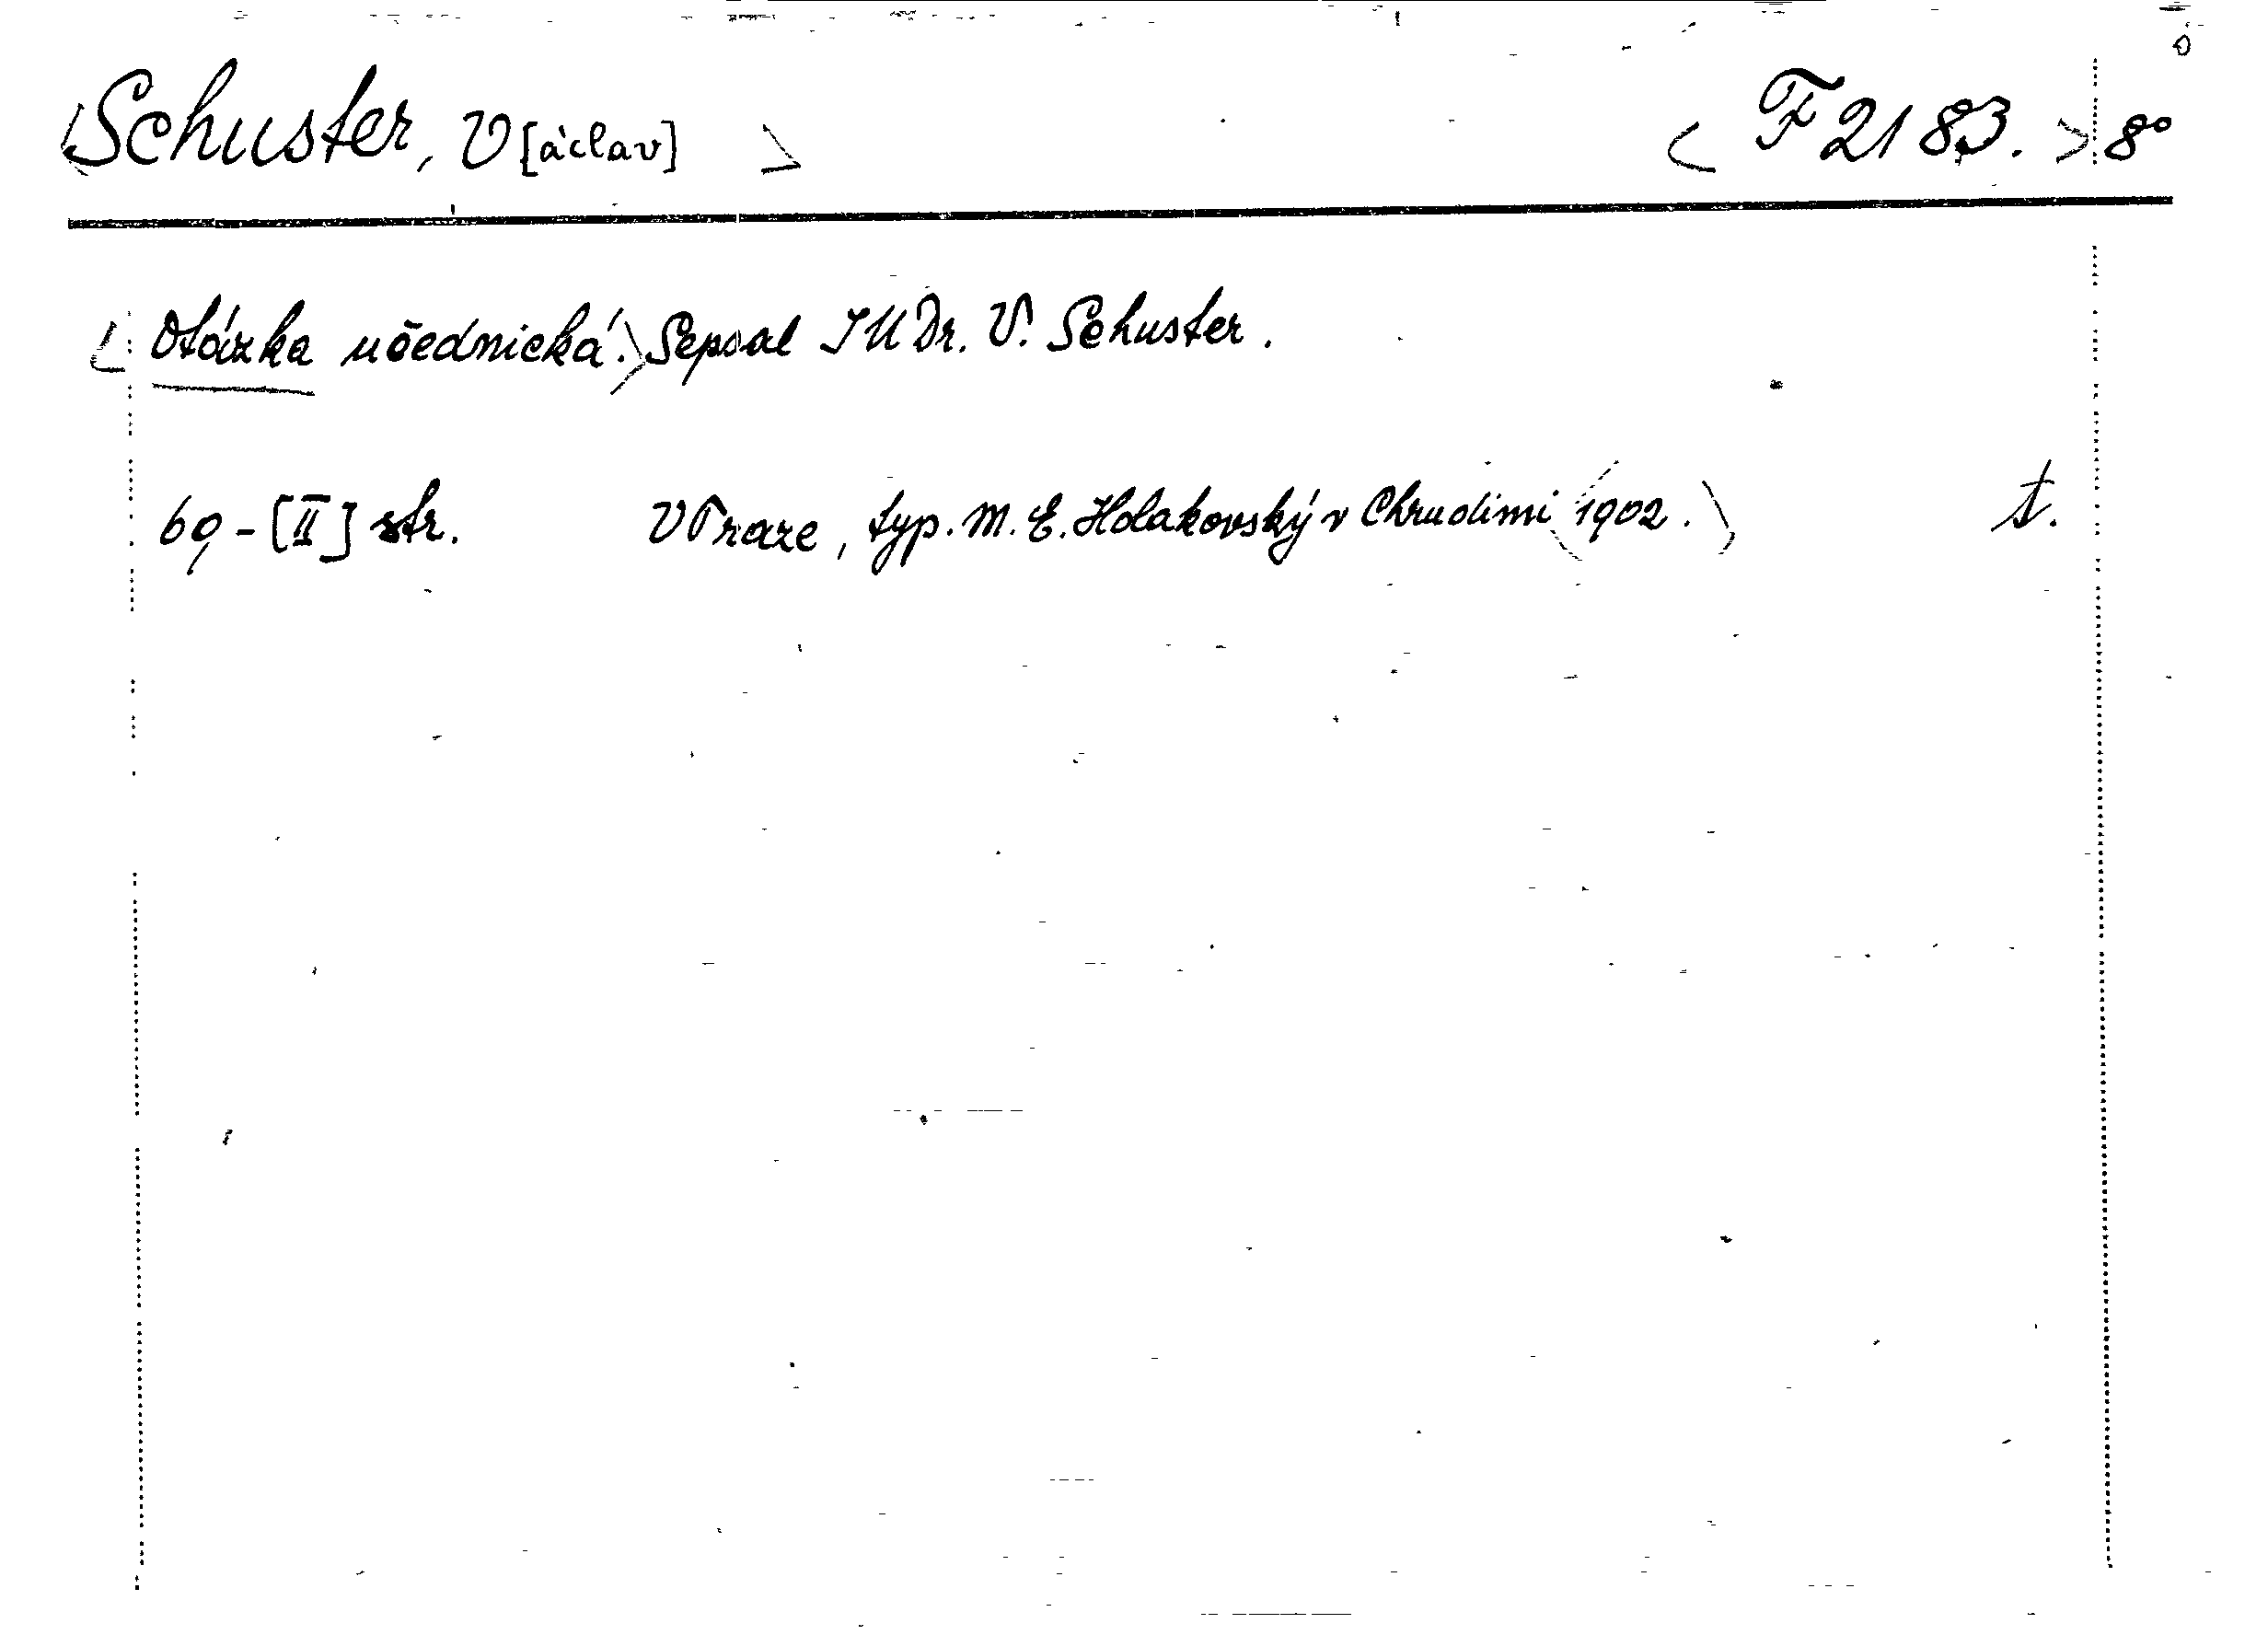 Schuster, V[áclav] F 2183. 8°
Otázka učednická. Sepsal JUDr. V. Schuster.
69-[II] str. V Praze, typ. M. E. Holakovský v Chrudimi 1902. t.